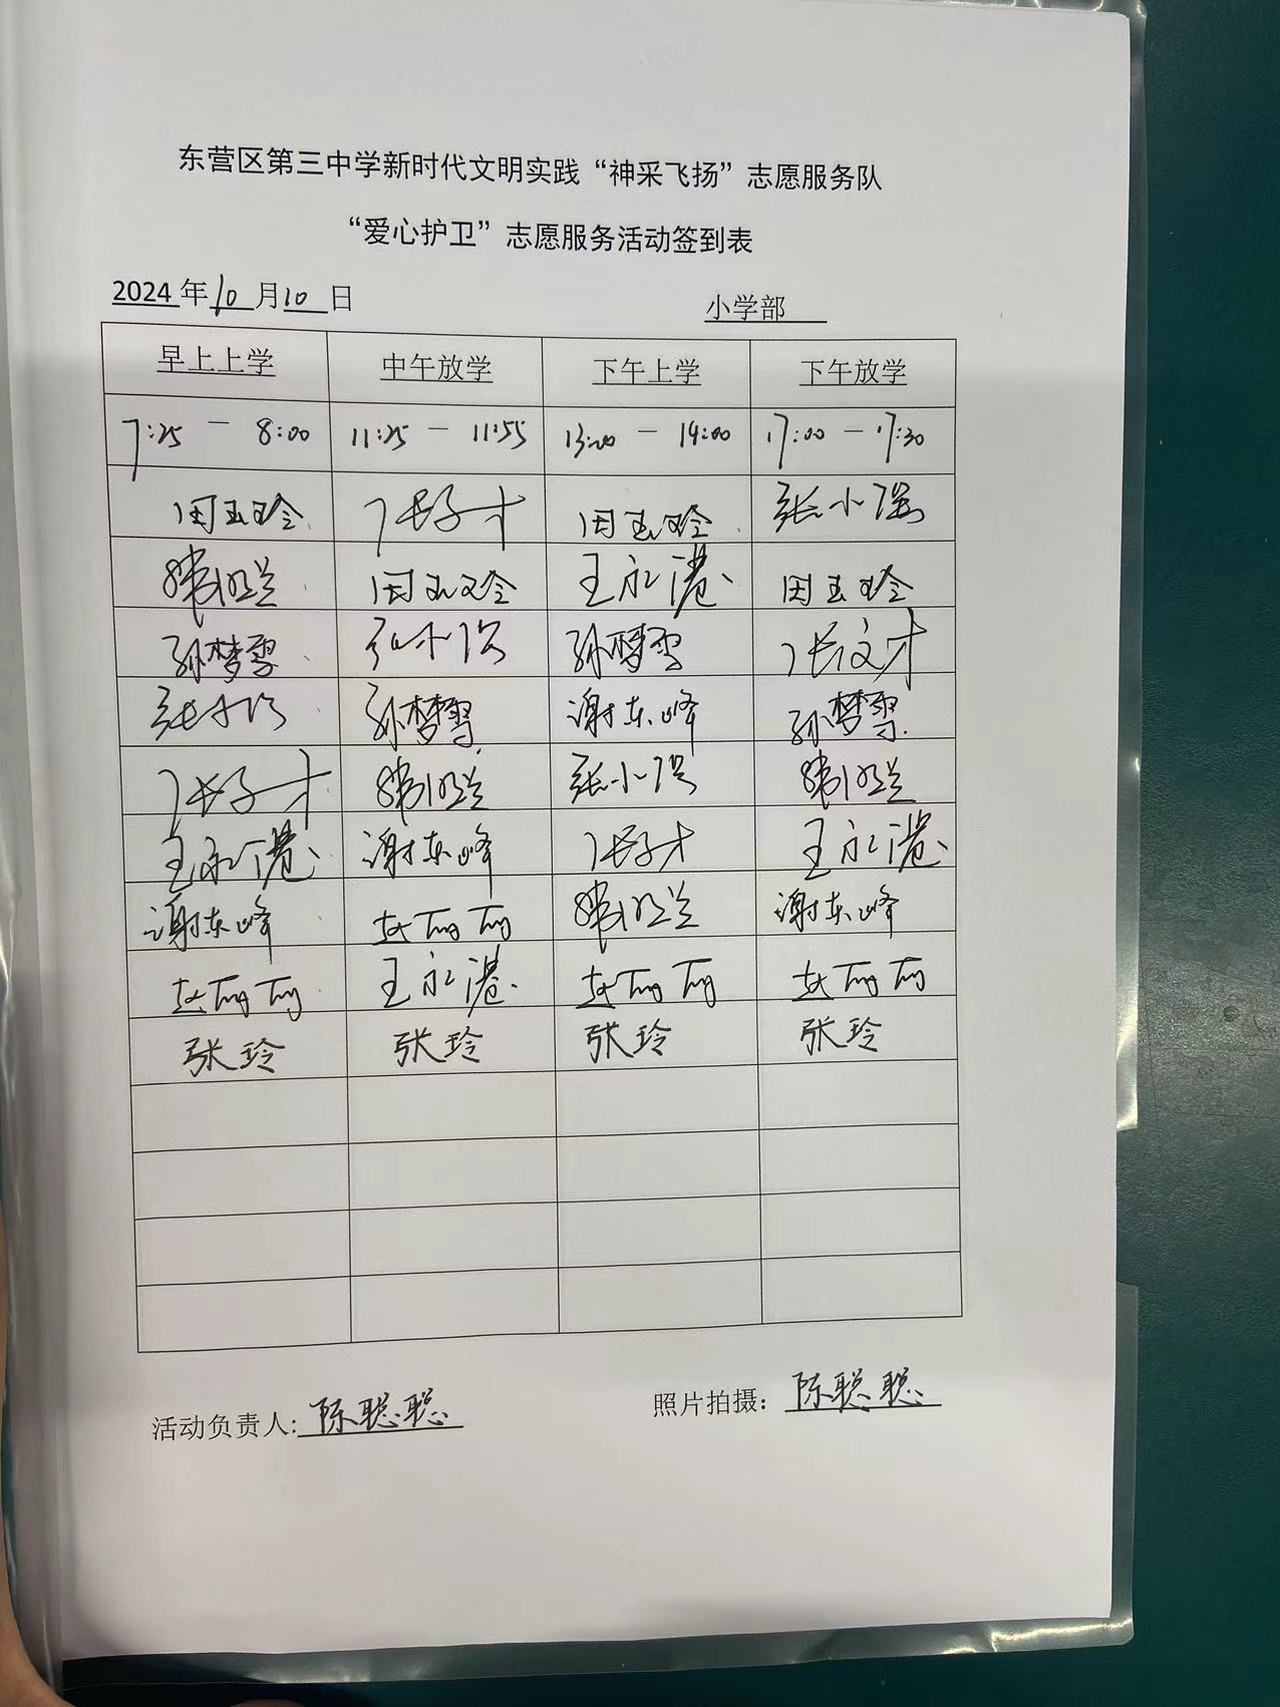 东营区第三中学新时代文明实践“神采飞扬”志愿服务队
“爱心护卫”志愿服务活动签到表
2024年10月10日 小学部
早上上学 中午放学 下午上学 下午放学
7:25 — 8:00 11:25 — 11:55 13:20 — 14:00 17:00 — 17:30
田玉玲 田玉玲 张小强
王永港 田玉玲
孙梦雪 张小强 孙梦雪 张文才
张小强 孙梦雪 谢东峰 孙梦雪
张小强
王永港 谢东峰 王永港
谢东峰 赵丽丽 谢东峰
赵丽丽 王永港 赵丽丽 赵丽丽
张玲 张玲 张玲 张玲
活动负责人:陈聪聪 照片拍摄：陈聪聪